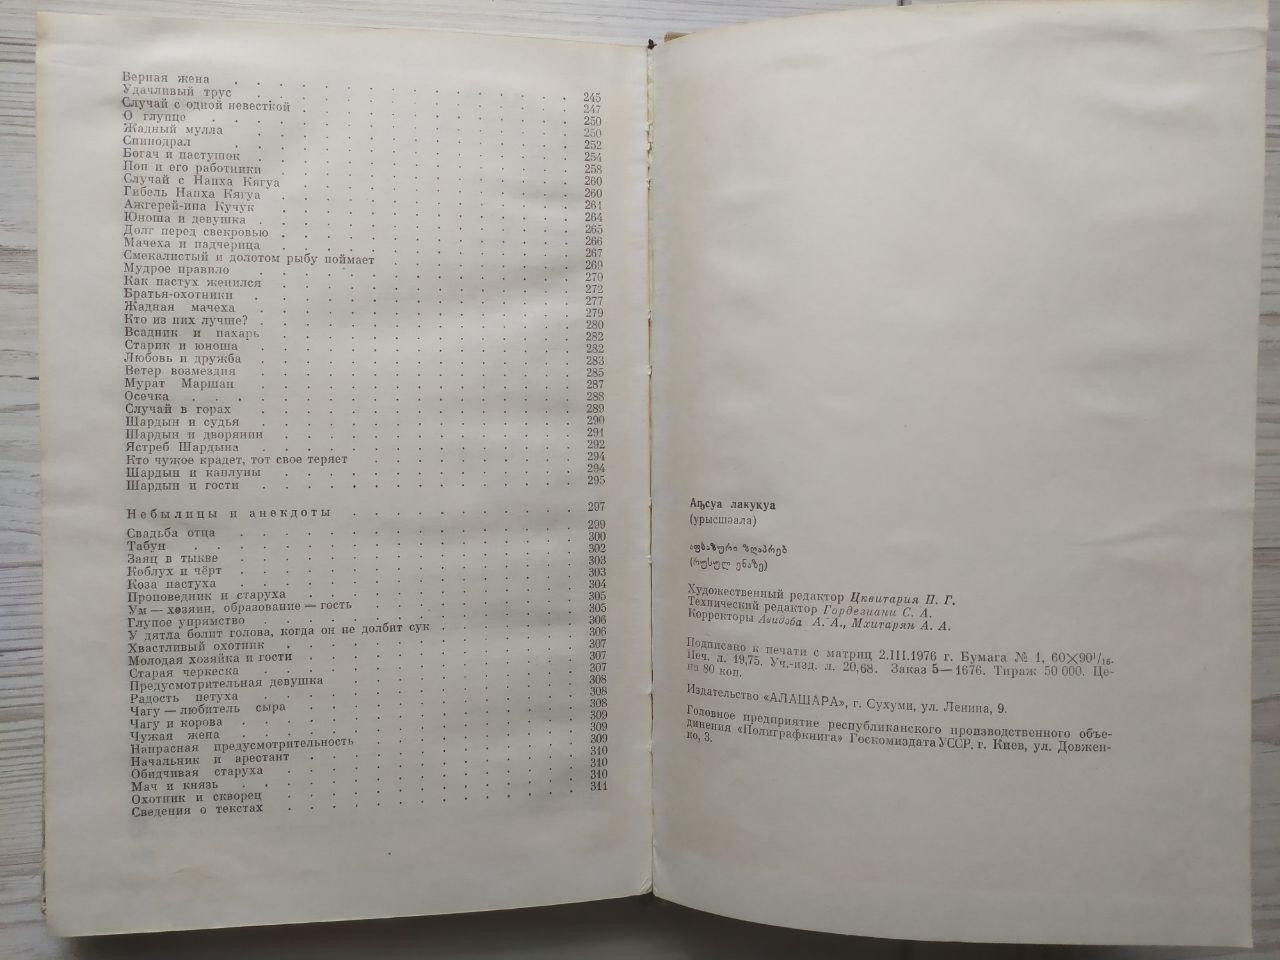 Верная жена 245
Удачливый трус 247
Случай с одной невесткой 250
О глупце 250
Жадный мулла 252
Спинодрал 254
Богач и пастушок 258
Поп и его работники 260
Случай с Напха Кягуа 260
Гибель Напха Кягуа 261
Ажгерей-ипа Кучук 264
Юноша и девушка 265
Долг перед свекровью 266
Мачеха и падчерица 267
Смекалистый и долотом рыбу поймает 269
Мудрое правило 270
Как пастух женился 272
Братья-охотники 277
Жадная мачеха 279
Кто из них лучше? 280
Всадник и пахарь 282
Старик и юноша 282
Любовь и дружба 283
Ветер возмездия 285
Мурат Маршан 287
Осечка 288
Случай в горах 289
Шардын и судья 290
Шардын и дворянин 291
Ястреб Шардына 292
Кто чужое крадет, тот свое теряет 294
Шардын и каплуны 294
Шардын и гости 295
Небылицы и анекдоты 297
Свадьба отца 299
Табун 300
Заяц в тыкве 302
Коблух и чёрт 303
Коза пастуха 303
Проповедник и старуха 304
Ум — хозяин, образование — гость 305
Глупое упрямство 305
У дятла болит голова, когда он не долбит сук 306
Хвастливый охотник 306
Молодая хозяйка и гости 307
Старая черкеска 307
Предусмотрительная девушка 307
Радость петуха 308
Чагу — любитель сыра 308
Чагу и корова 308
Чужая жена 309
Напрасная предусмотрительность 309
Начальник и арестант 309
Обидчивая старуха 310
Мач и князь 310
Охотник и скворец 310
Сведения о текстах 311
Аҧсуа лакуқуа
(урысшәала)
აფხაზური ზღაპრები
(რუსულ ენაზე)
Художественный редактор Цквитария П. Г.
Технический редактор Гордезиани С. А.
Корректоры Авидзба А. А., Мхитарян А. А.
Подписано к печати с матриц 2.III.1976 г. Бумага № 1, 60×90¹/₁₆.
Печ. л. 19,75. Уч.-изд. л. 20,68. Заказ 5—1676. Тираж 50 000. Це-
на 80 коп.
Издательство «АЛАШАРА», г. Сухуми, ул. Ленина, 9.
Головное предприятие республиканского производственного объе-
динения «Полиграфкнига» Госкомиздата УССР. г. Киев, ул. Довжен-
ко, 3.